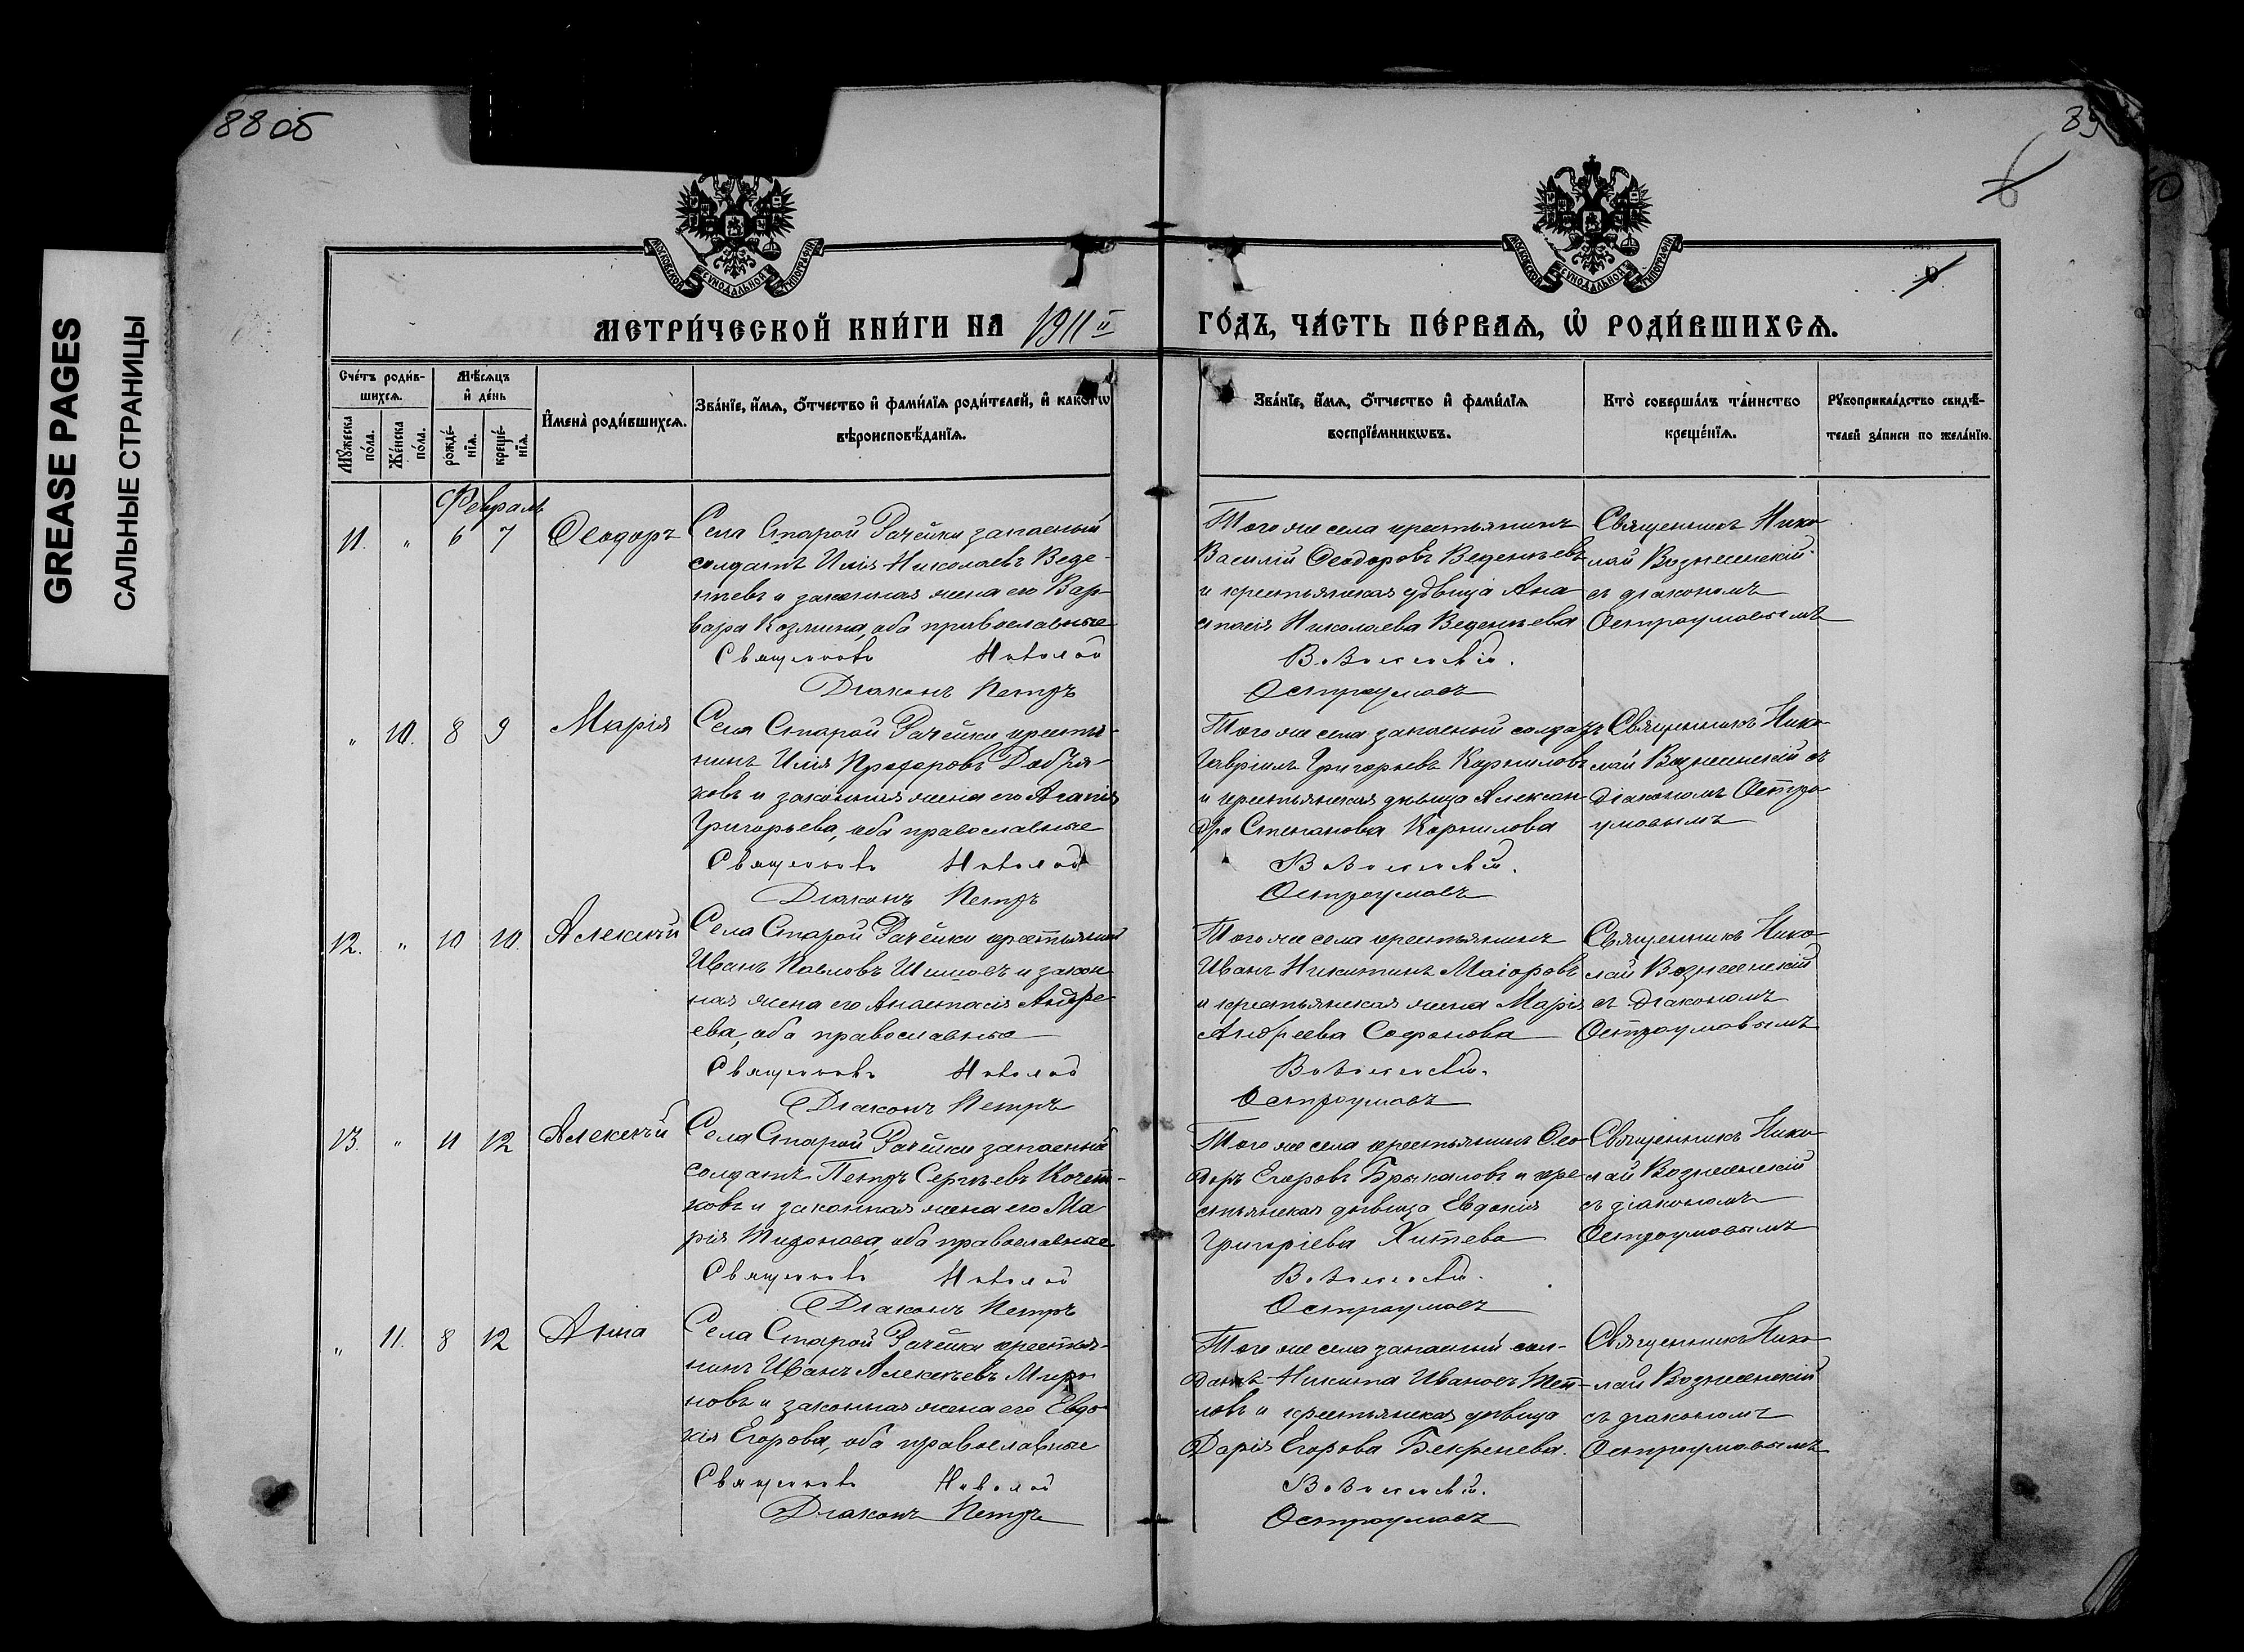 88 об
89
6
GREASE PAGES
САЛЬНЫЕ СТРАНИЦЫ
МОСКОВСКОЙ СѴНОДАЛЬНОЙ ТИПОГРАФІИ
МОСКОВСКОЙ СѴНОДАЛЬНОЙ ТИПОГРАФІИ
МЕТРИ́ЧЕСКОЙ КНИ́ГИ НА 1911й
ГО́ДЪ, ЧА́СТЬ ПЕ́РВАЯ, Ѡ҆ РОДИ́ВШИХСЯ.
Сче́тъ роди́в-
шихся.
Мꙋжеска по́ла.
Же́нска по́ла.
Мѣ́сяцъ
и҆ де́нь
рожде́-
нїя.
креще́-
нїя.
И҆мена̀ роди́вшихся.
Зва́нїе, и҆́мя, ѻ҆́тчество и҆ фами́лїя роди́телей, и҆ како́гѡ
вѣроисповѣ́данїя.
Зва́нїе, и҆́мя, ѻ҆́тчество и҆ фами́лїя
воспрїе́мникѡвъ.
Кто̀ соверша́лъ та́инство
креще́нїя.
Рꙋкоприкла́дство свидѣ́-
телей за́писи по жела́нїю.
Февраль
11. " 6 7 Ѳеодоръ
Села Старой Рачейки запасный
солдатъ Илія Николаевъ Веде-
нѣевъ и законная жена его Вар-
вара Козмина, оба православные
Священникъ Николай
Діаконъ Петръ
Того же села крестьянинъ
Василій Ѳеодоровъ Веденѣевъ
и крестьянская дѣвица Ана
стасія Николаева Веденѣева
Вознесенскій.
Остроумовъ
Священникъ Нико-
лай Вознесенскій
съ діакономъ
Остроумовымъ
" 10. 8 9 Марія
Села Старой Рачейки крестья-
нинъ Илія Прохоровъ Добря-
ковъ и законная жена его Агапія
Григорьева, оба православные
Священникъ Николай
Діаконъ Петръ
Того же села запасный солдатъ
Гавріилъ Григорьевъ Корниловъ
и крестьянская дѣвица Алексан-
дра Степанова Корнилова
Вознесенскій.
Остроумовъ
Священникъ Нико-
лай Вознесенскій съ
діакономъ Остро-
умовымъ
12. " 10 10 Алексѣй
Села Старой Рачейки крестьянинъ
Иванъ Павловъ и закон
ная жена его Анастасія Андре-
ева, оба православные
Священникъ Николай
Діаконъ Петръ
Того же села крестьянинъ
Иванъ Никитинъ Маіоровъ
и крестьянская жена Марія
Андреева Софонова
Вознесенскій.
Остроумовъ
Священникъ Нико-
лай Вознесенскій
съ діакономъ
Остроумовымъ
13. " 11 12 Алексѣй
Села Старой Рачейки запасный
солдатъ Петръ Сергѣевъ Кочет-
ковъ и законная жена его Ма
рія Тихонова, оба православные
Священникъ Николай
Діаконъ Петръ
Того же села крестьянинъ Ѳео-
доръ Егоровъ Брыкаловъ и кре-
стьянская дѣвица Евдокія
Григоріева Хитева
Вознесенскій.
Остроумовъ
Священникъ Нико-
лай Вознесенскій
съ діакономъ
Остроумовымъ
" 11. 8 12 Анна
Села Старой Рачейки крестья-
нинъ Иванъ Алексѣевъ Миро
новъ и законная жена его Евдо
кія Егорова, оба православные
Священникъ Николай
Діаконъ Петръ
Того же села запасный сол-
датъ Никита Ивановъ Теп-
ловъ и крестьянская дѣвица
Дарія Егорова Бекренева.
Вознесенскій.
Остроумовъ
Священникъ Нико-
лай Вознесенскій
съ діакономъ
Остроумовымъ